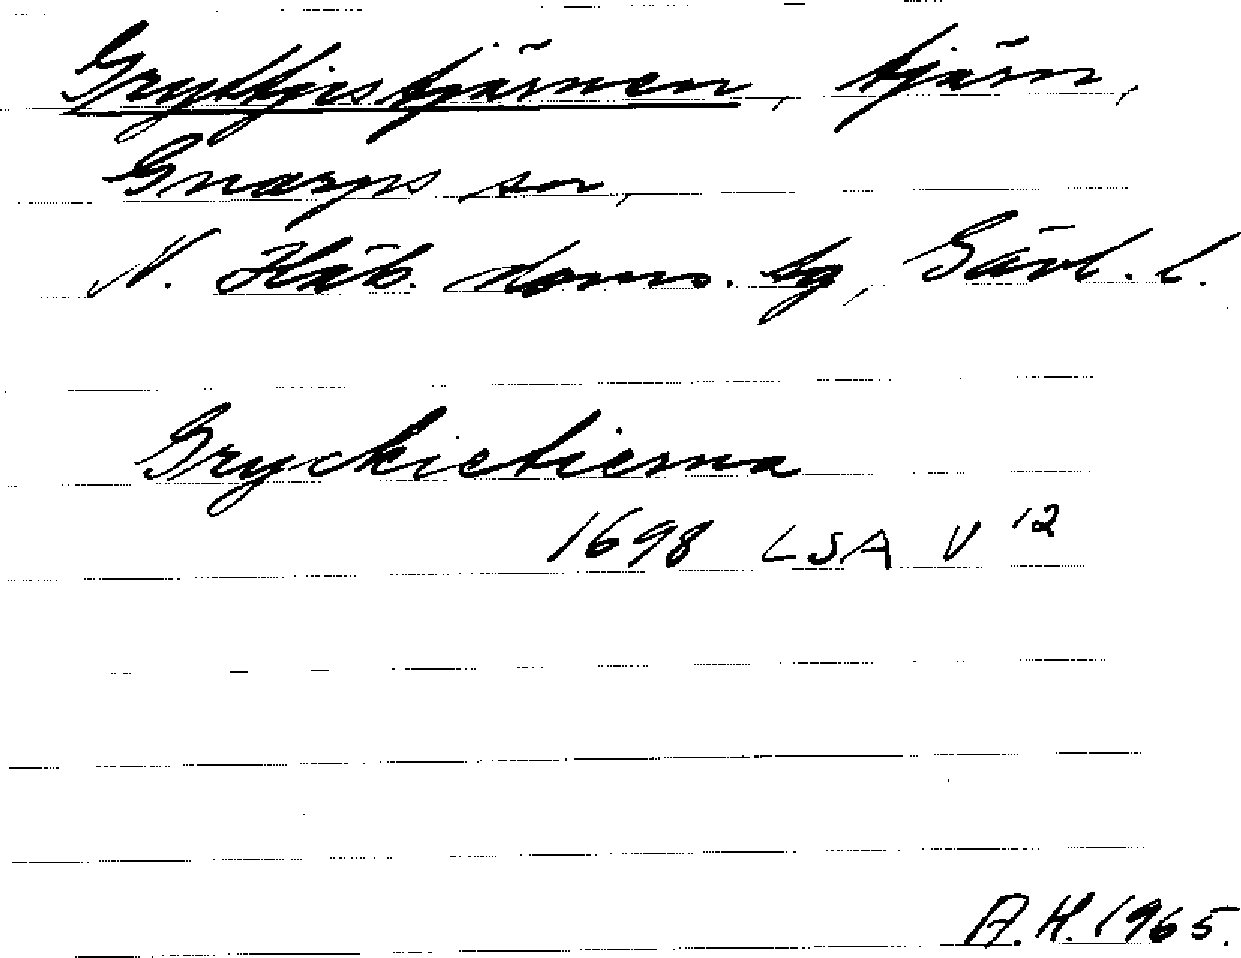 Gryttjestjärnen, tjärn,
Gnarps sn,
N. Häls. doms. sg, Gävl. l.
Gryckietierna
1698 LSA V 12
A.H. 1965.